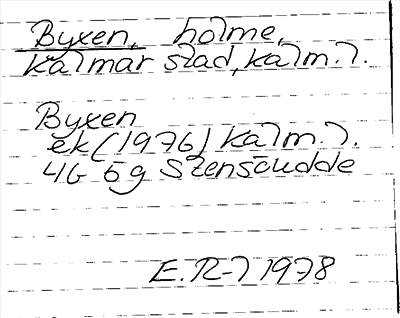 Byxen, holme,
Kalmar stad, kalm. l.
Byxen
ek (1976) Kalm. l.
4G 5g Stensöudde
E. R-l 1978